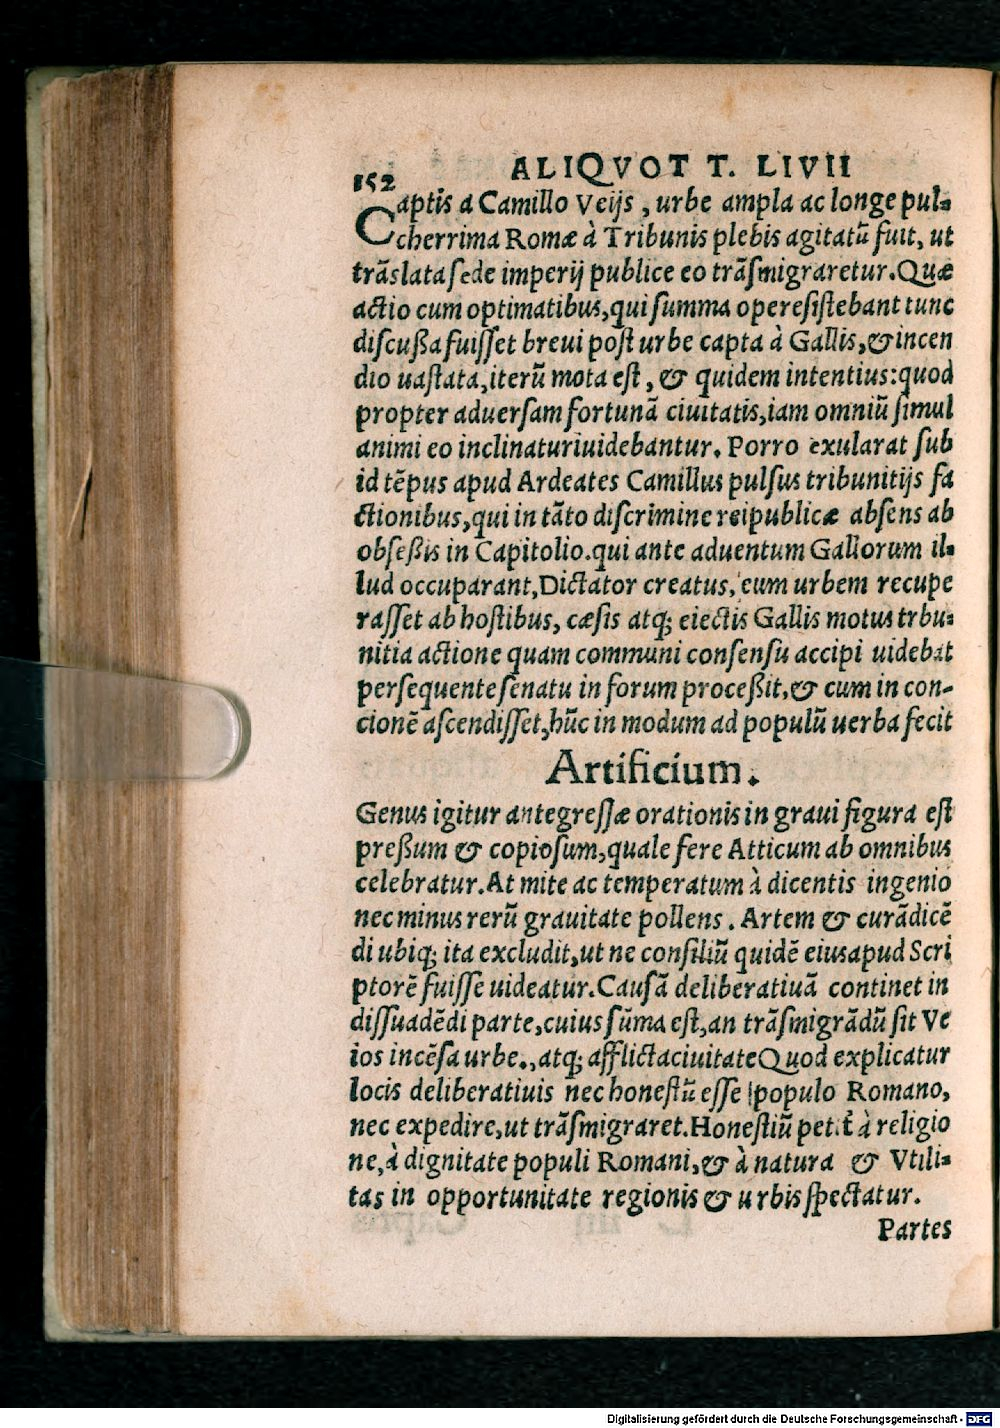 152 ALIQVOT T. LIVII
Captis a Camillo Veijs, urbe ampla ac longe pul-
cherrima Romæ à Tribunis plebis agitatũ fuit, ut
trãslata sede imperij publice eo trãsmigraretur. Quæ
actio cum optimatibus, qui summa ope resistebant tunc
discußa fuisset breui post urbe capta à Gallis, & incen
dio uastata, iterũ mota est, & quidem intentius: quod
propter aduersam fortunã ciuitatis, iam omniũ simul
animi eo inclinaturi uidebantur. Porro exularat sub
id tẽpus apud Ardeates Camillus pulsus tribunitijs fa
ctionibus, qui in tãto discrimine reipublicæ absens ab
obseßis in Capitolio. qui ante aduentum Gallorum il-
lud occuparant, Dictator creatus, cum urbem recupe
rasset ab hostibus, cæsis atq; eiectis Gallis motus trbu-
nitia actione quam communi consensu accipi uidebat
persequente senatu in forum proceßit, & cum in con-
cionẽ ascendisset, hũc in modum ad populũ uerba fecit
Artificium.
Genus igitur antegressæ orationis in graui figura est
preßum & copiosum, quale fere Atticum ab omnibus
celebratur. At mite ac temperatum à dicentis ingenio
nec minus rerũ grauitate pollens. Artem & curã dicẽ
di ubiq; ita excludit, ut ne consiliũ quidẽ eius apud Scri
ptorẽ fuisse uideatur. Causã deliberatiuã continet in
dissuadẽdi parte, cuius sũma est, an trãsmigrãdũ sit Ve
ios incẽsa urbe., atq; afflicta ciuitate Quod explicatur
locis deliberatiuis nec honestũ esse populo Romano,
nec expedire, ut trãsmigraret. Honestiũ petit à religio
ne, à dignitate populi Romani, & à natura & Vtili-
tas in opportunitate regionis & urbis spectatur.
Partes
Digitalisierung gefördert durch die Deutsche Forschungsgemeinschaft - DFG